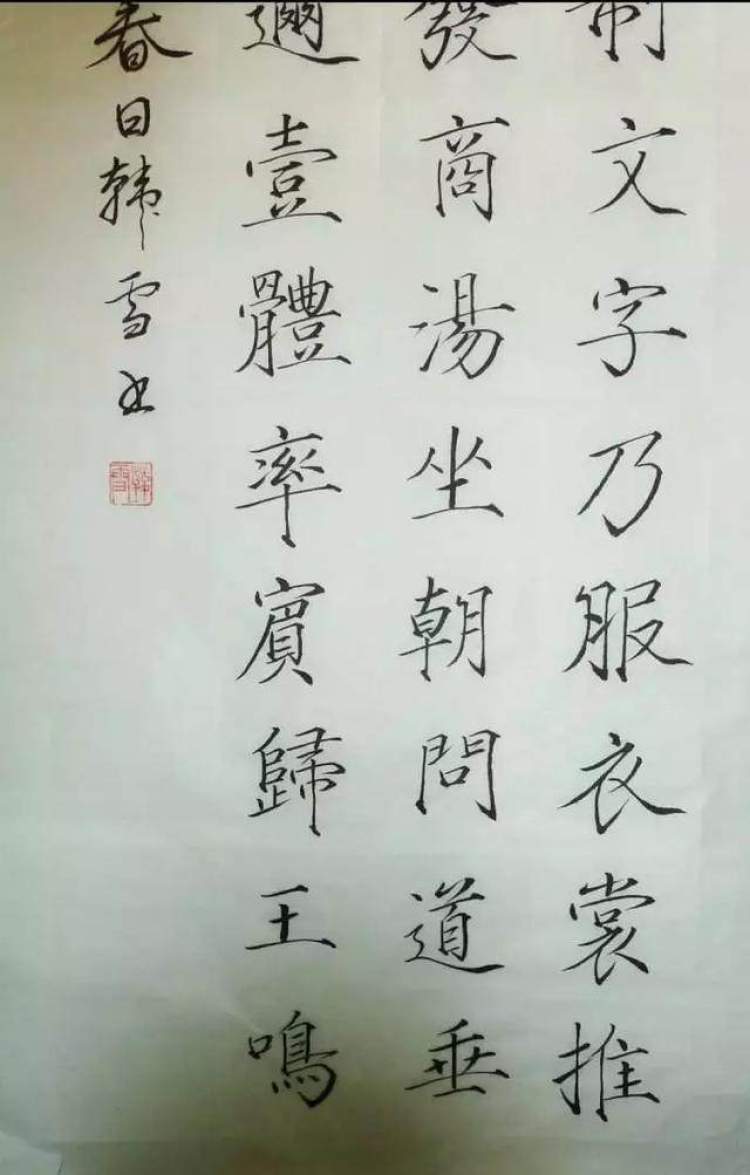 制文字乃服衣裳推
發商湯坐朝問道垂
邇壹體率賓歸王鳴
春日韓雪书
韓雪